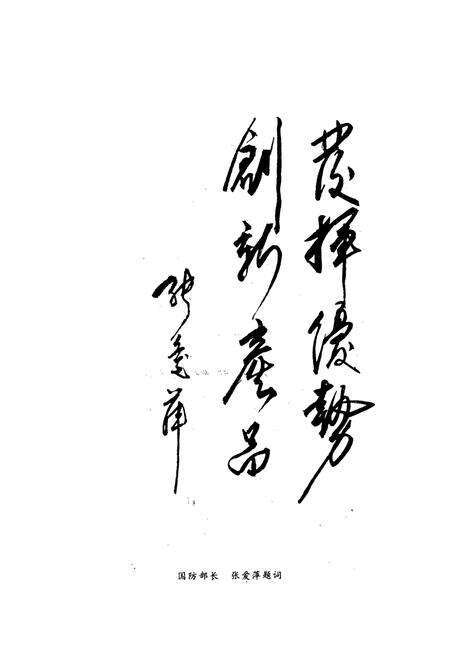 發揮優勢
創新產品
張愛萍
国防部长 张爱萍题词